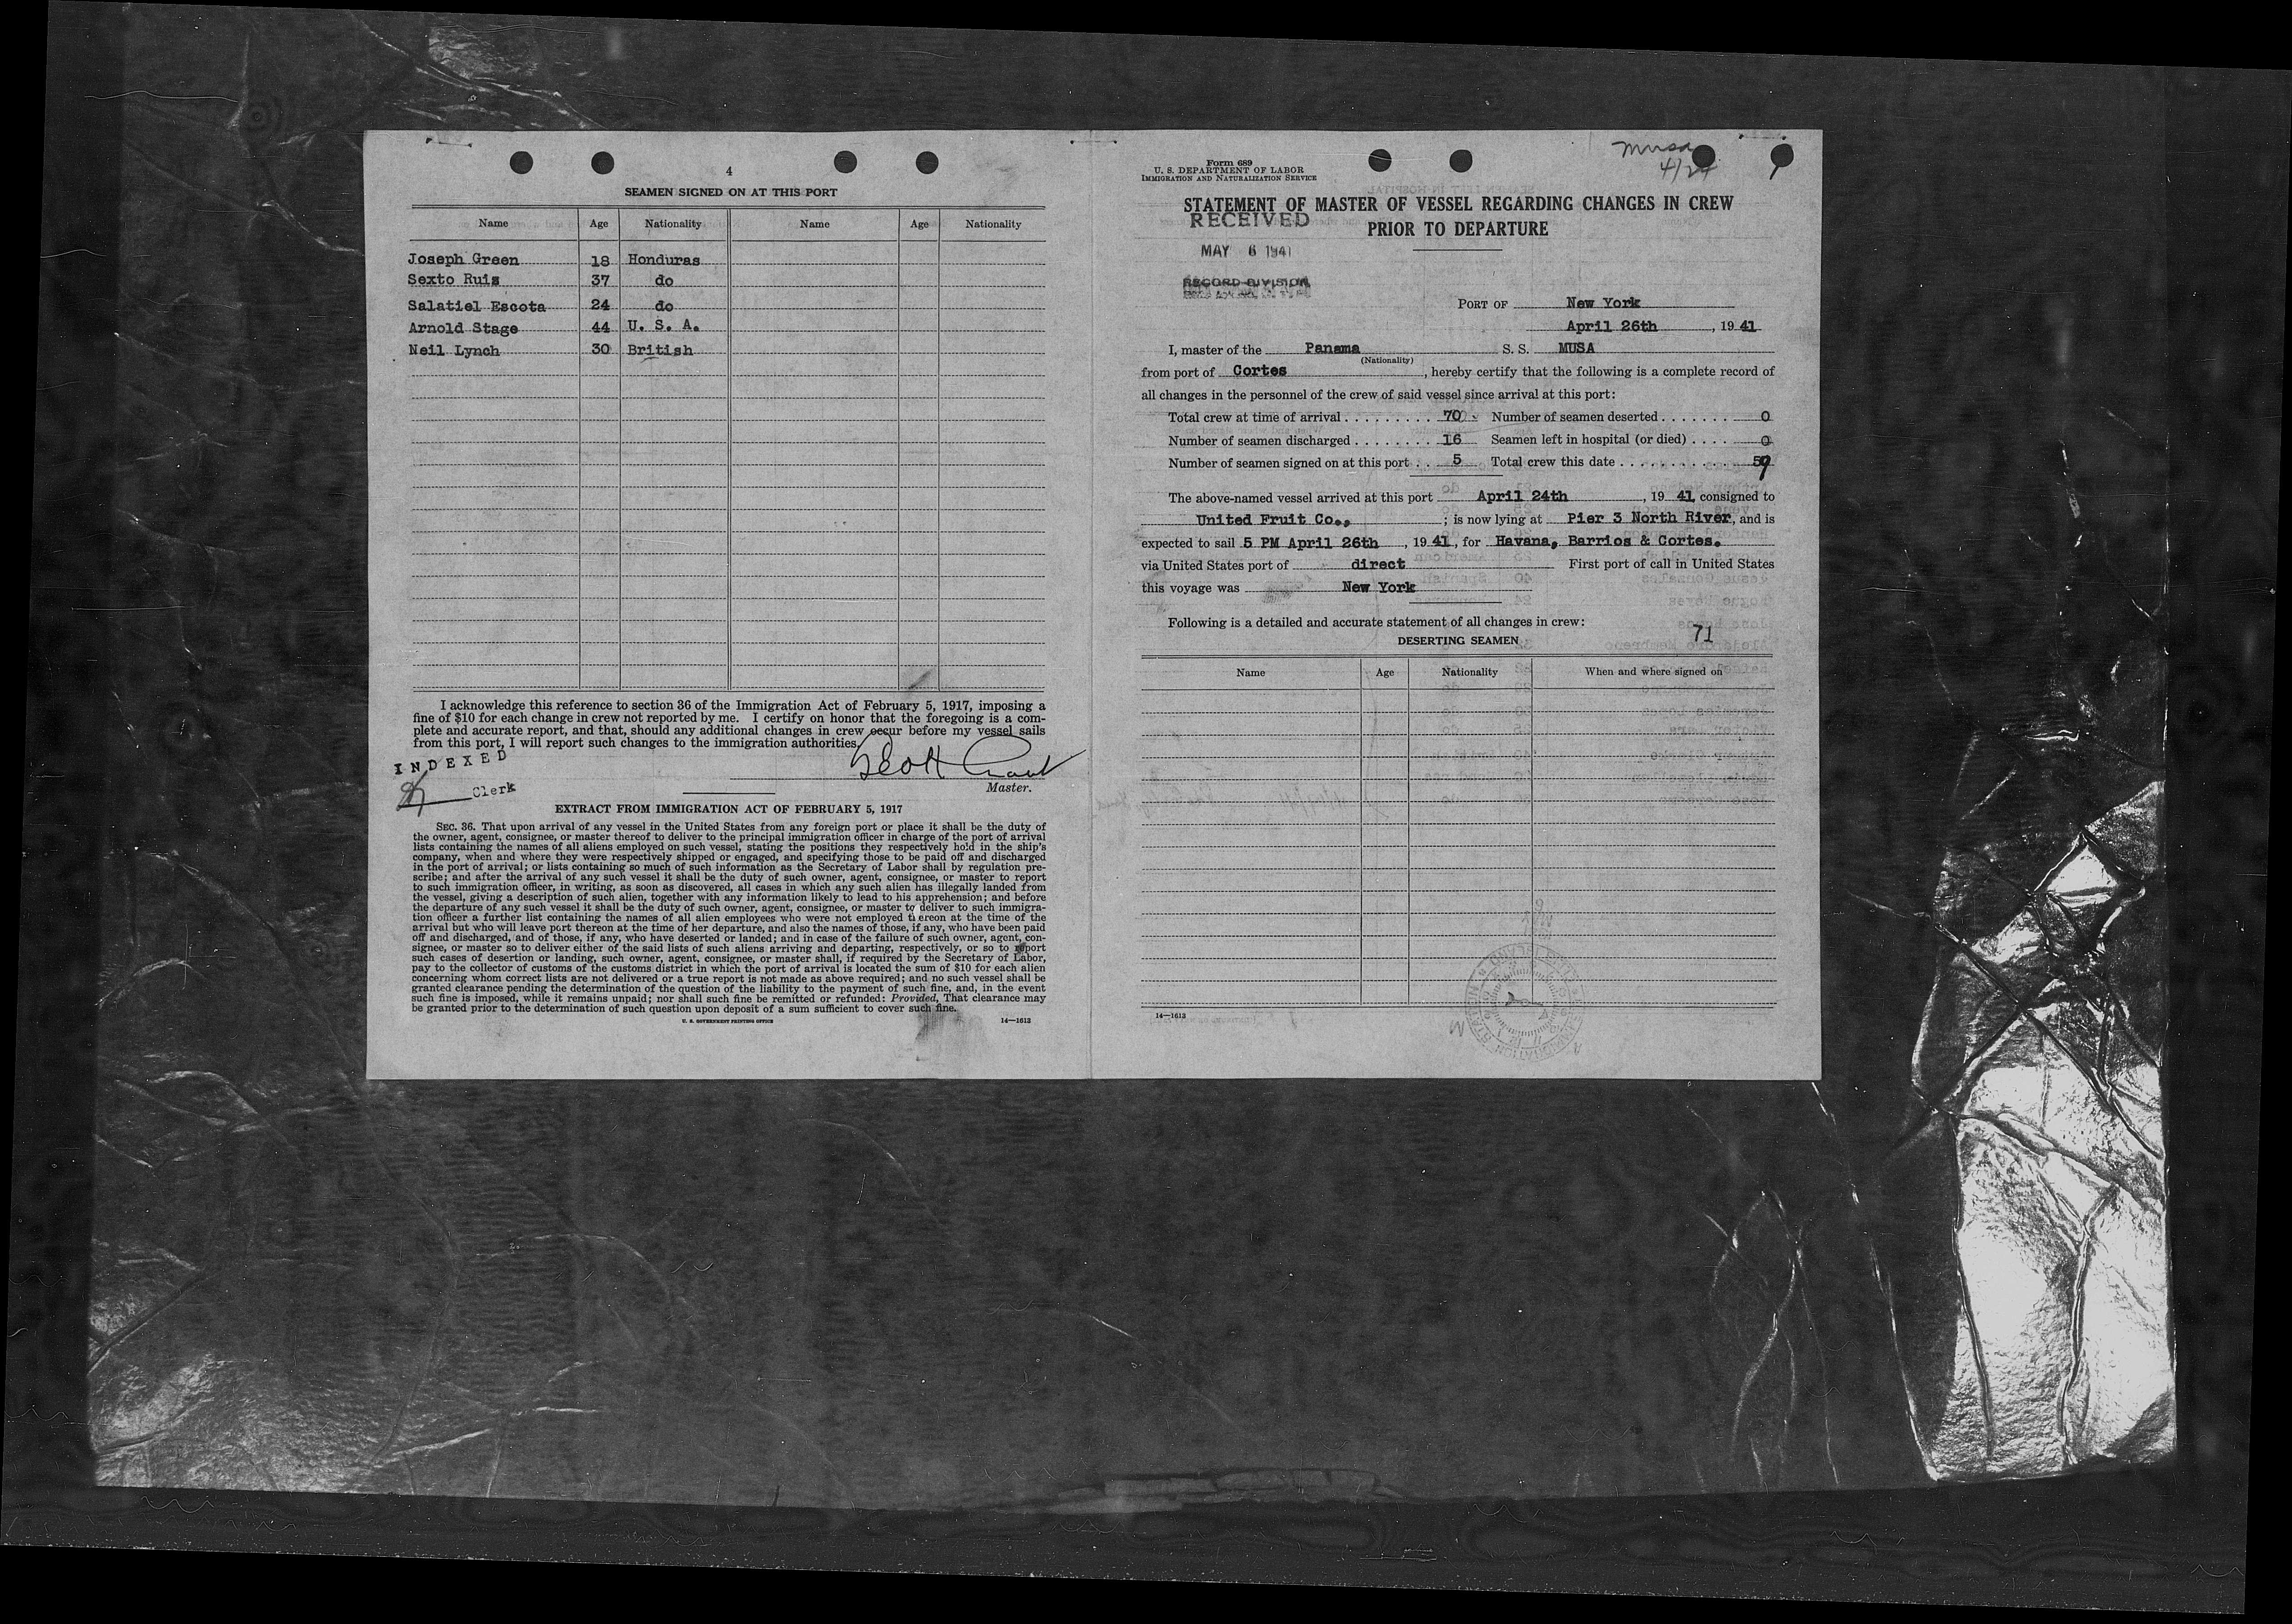 4
SEAMEN SIGNED ON AT THIS PORT
Name Age Nationality Name Age Nationality
Joseph Green 18 Honduras
Sexto Ruiz 37 do
Salatiel Escota 24 do
Arnold Stage 44 U. S. A.
Neil Lynch 30 British
I acknowledge this reference to section 36 of the Immigration Act of February 5, 1917, imposing a
fine of $10 for each change in crew not reported by me. I certify on honor that the foregoing is a com-
plete and accurate report, and that, should any additional changes in crew occur before my vessel sails
from this port, I will report such changes to the immigration authorities.
INDEXED
Clerk
Scott Grant
Master.
EXTRACT FROM IMMIGRATION ACT OF FEBRUARY 5, 1917
SEC. 36. That upon arrival of any vessel in the United States from any foreign port or place it shall be the duty of
the owner, agent, consignee, or master thereof to deliver to the principal immigration officer in charge of the port of arrival
lists containing the names of all aliens employed on such vessel, stating the positions they respectively hold in the ship's
company, when and where they were respectively shipped or engaged, and specifying those to be paid off and discharged
in the port of arrival; or lists containing so much of such information as the Secretary of Labor shall by regulation pre-
scribe; and after the arrival of any such vessel it shall be the duty of such owner, agent, consignee, or master to report
to such immigration officer, in writing, as soon as discovered, all cases in which any such alien has illegally landed from
the vessel, giving a description of such alien, together with any information likely to lead to his apprehension; and before
the departure of any such vessel it shall be the duty of such owner, agent, consignee, or master to deliver to such immigra-
tion officer a further list containing the names of all alien employees who were not employed thereon at the time of the
arrival but who will leave port thereon at the time of her departure, and also the names of those, if any, who have been paid
off and discharged, and of those, if any, who have deserted or landed; and in case of the failure of such owner, agent, con-
signee, or master so to deliver either of the said lists of such aliens arriving and departing, respectively, or so to report
such cases of desertion or landing, such owner, agent, consignee, or master shall, if required by the Secretary of Labor,
pay to the collector of customs of the customs district in which the port of arrival is located the sum of $10 for each alien
concerning whom correct lists are not delivered or a true report is not made as above required; and no such vessel shall be
granted clearance pending the determination of the question of the liability to the payment of such fine, and, in the event
such fine is imposed, while it remains unpaid; nor shall such fine be remitted or refunded: Provided, That clearance may
be granted prior to the determination of such question upon deposit of a sum sufficient to cover such fine.
U. S. GOVERNMENT PRINTING OFFICE 14—1613
Musa
4/24
Form 689
U. S. DEPARTMENT OF LABOR
IMMIGRATION AND NATURALIZATION SERVICE
STATEMENT OF MASTER OF VESSEL REGARDING CHANGES IN CREW
PRIOR TO DEPARTURE
RECEIVED
MAY 6 1941
RECORD DIVISION
PORT OF New York
April 26th, 19 41
I, master of the Panama S. S. MUSA
(Nationality)
from port of Cortes, hereby certify that the following is a complete record of
all changes in the personnel of the crew of said vessel since arrival at this port:
Total crew at time of arrival . . . . . . . . . 70 Number of seamen deserted . . . . . . . 0
Number of seamen discharged . . . . . . . . 16 Seamen left in hospital (or died) . . . . 0
Number of seamen signed on at this port . . 5 Total crew this date . . . . . . . . . . 59
The above-named vessel arrived at this port April 24th, 19 41, consigned to
United Fruit Co., ; is now lying at Pier 3 North River, and is
expected to sail 5 PM April 26th, 19 41, for Havana, Barrios & Cortes.
via United States port of direct First port of call in United States
this voyage was New York
Following is a detailed and accurate statement of all changes in crew:
71
DESERTING SEAMEN
Name Age Nationality When and where signed on
14—1613